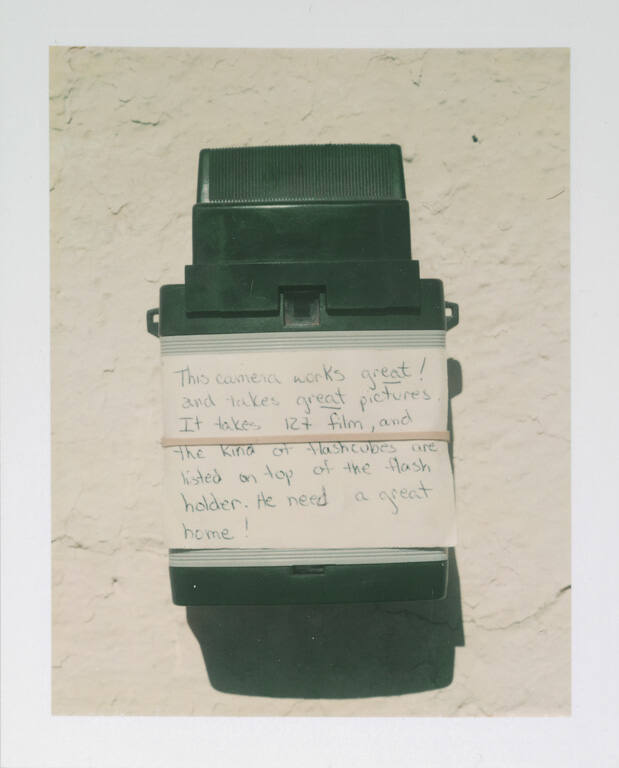 This camera works great!
and takes great pictures.
It takes 127 film, and
the kind of flashcubes are
listed on top of the flash
holder. He need a great
home!